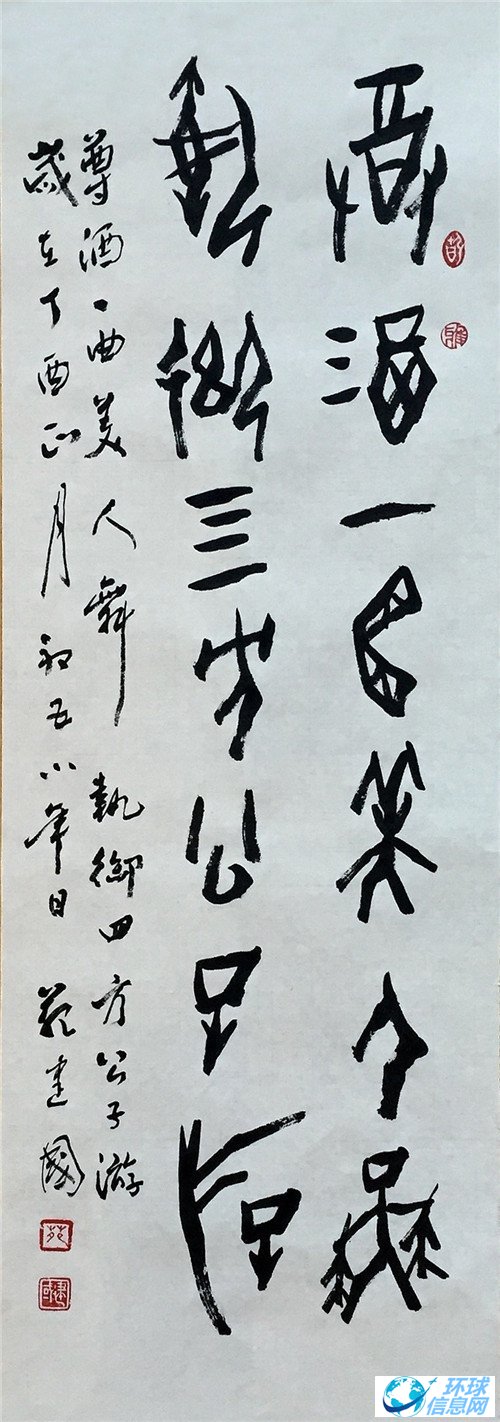 尊酒一曲美人舞
執御四方公子游
尊酒一曲美人舞 執御四方公子游
歲在丁酉正月初五小年日 苑建國
苑
环球
信息网